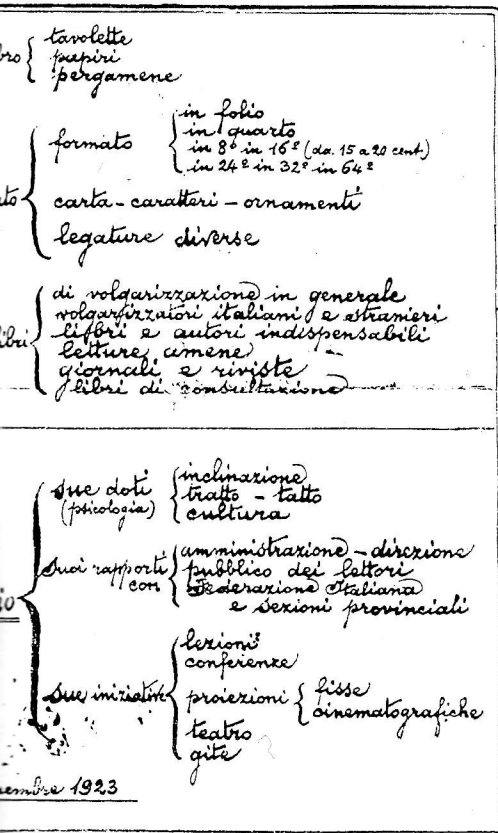 tavolette
bro { papiri
pergamene
formato { in folio
in quarto
in 8º in 16º (da 15 a 20 cent.)
in 24º in 32º in 64º
to { carta - caratteri - ornamenti
legature diverse
di volgarizzazione in generale
volgarizzatori italiani e estranieri
libri { libri e autori indispensabili
letture amene
giornali e riviste
libri di consultazione
sue doti { inclinazione
(psicologia) tratto - tatto
cultura
suoi rapporti { amministrazione - direzione
con pubblico dei lettori
Federazione Italiana
io { e sezioni provinciali
lezioni
conferenze
sue iniziative { proiezioni { fisse
cinematografiche
teatro
gite
embre 1923